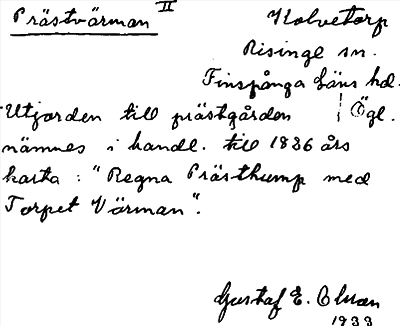 Prästvärman II Kolvetorp
Risinge sn.
Finspånga läns hd.
Utjorden till prästgården Ögl.
nämnes i handl. till 1836 års
karta : "Regna Prästhump med
Torpet Värman".
Gustaf E. Olsson
1933